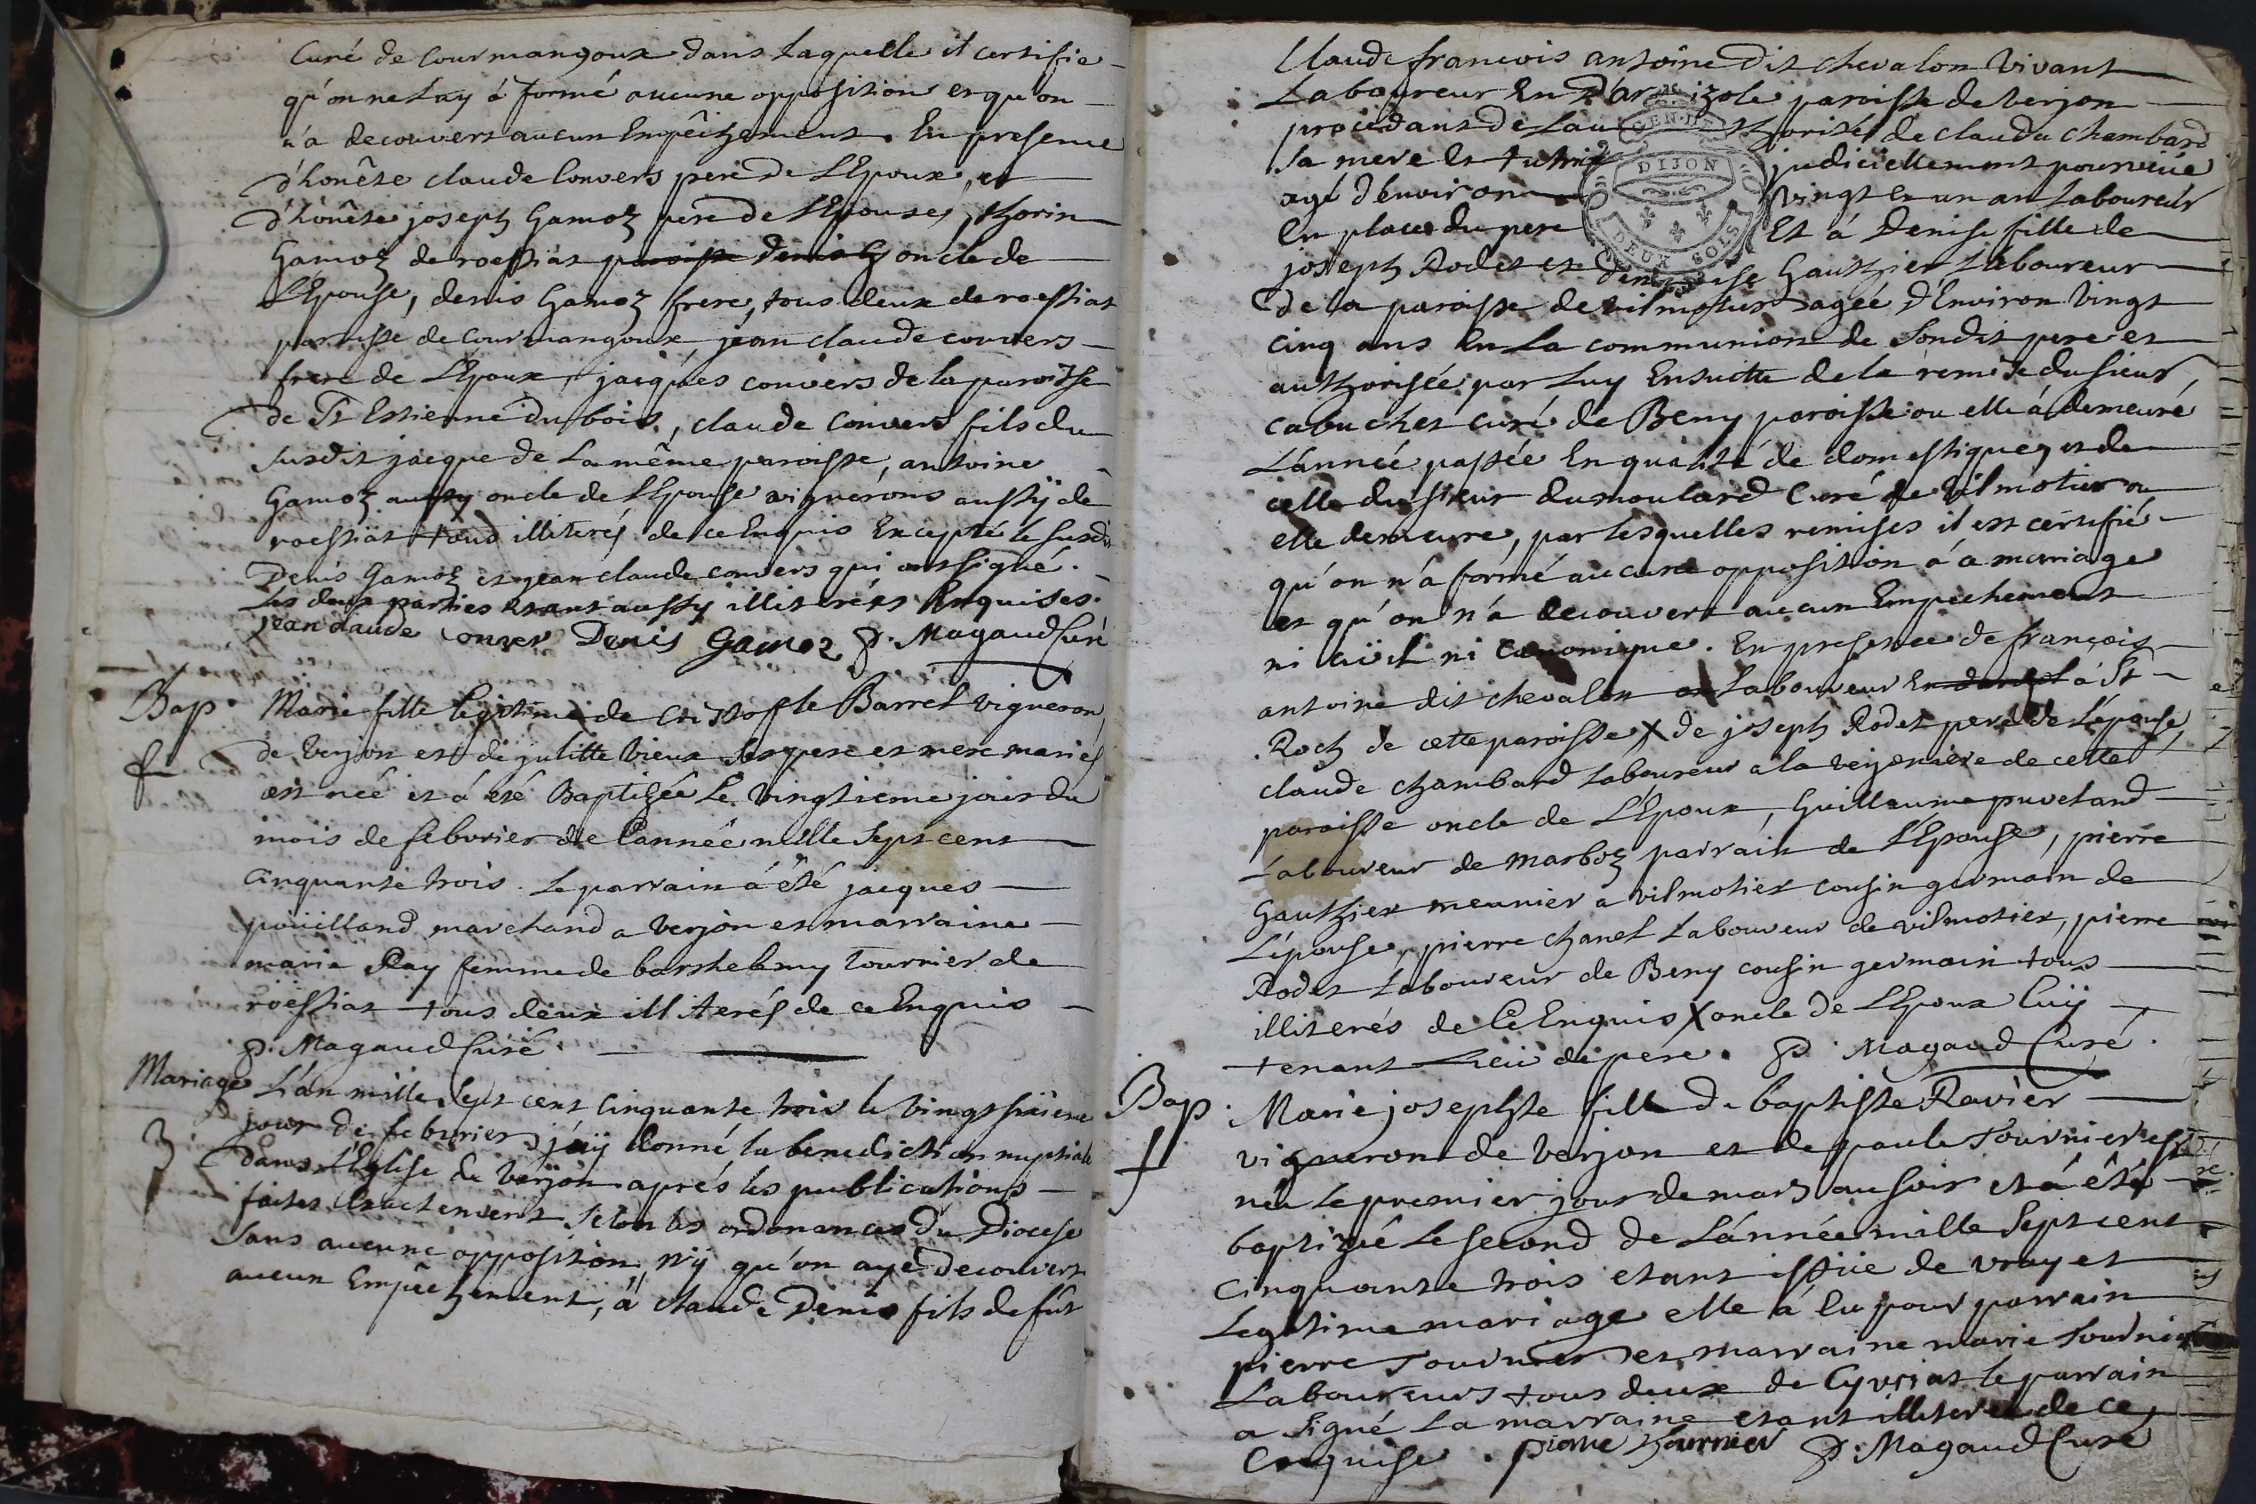 Curé de Courmangoux dans Laquelle il certifie
qu'on ne Luy à formé aucune opposition et qu'on
n'a decouvert aucun Empêchement. En presence
d'honête claude Convers pere de L'Epoux, et
d'honête joseph Gamoz pere de L'Epouse, thorin
Gamoz de roessiat paroisse Denis G oncle de
L'Epouse, denis Gamoz frere, tous deux de roessiat
paroisse de Courmangoux, jean claude convers
frere de L'Epoux, jacques convers de la paroisse
de St Estienne du bois, claude Convers fils du
susdit jacque de La même paroisse, antoine
Gamoz aussy oncle de L'Epouse vignerons aussÿ de
roessiat tous illiterés de ce Enquis Excepté le susdt
Denis Gamoz et jean claude convers qui ont signé.
Les deux parties etant aussy illiterées Enquises.
jean claude conver Denis Gamoz P. Magaud Curé
Bap. Marie fille legitime de Cristofle Barrel vigneron
f de Verjon et de julitte Vieux ses pere et mere mariés
est née et á eté Baptizée Le Vingtieme jour du
mois de feburier de L'année mille sept cent
cinquante trois. Le parrain á êté jacques
poüilland marchand a Verjon et marraine
marie Ray femme de barthelemy Tournier de
roëssiat tous deux illiterés de ce Enquis
P. Magaud Curé.
Mariage L'an mille sept cent Cinquante trois le vingt sixieme
3 jour de feburier j'aÿ donné la benediction nuptiale
dans L'Eglise de Verjon aprés les publications
faites Exactement selon les ordonances du Diocese
sans aucune opposition nÿ qu'on aye decouvert
aucun Empêchement, á claude Denis fils de fût
Claude francois antoine dit chevalon Vivant
Laboureur En Dar izole paroisse de Verjon
procedant de L'au thorité de clauda chambard
sa mere et tutrice judiciellement pourvüe
agé d'environ vingt et un an Laboureur
En place du pere Et á Denise fille de
joseph Rodet et denise Gauthier Laboureur
de la paroisse de vilmotier agée d'Environ Vingt
cinq ans En La communion de Sondit pere et
authorisée par Luy Ensuitte de la remise du sieur
cabuchet curé de Beny paroisse ou elle á demeuré
L'année passée En qualité de domestique, et de
celle du sieur dumoulard Curé de vilmotier ou
elle demeure, par lesquelles remises il est certifié
qu'on n'a formé aucune opposition á ce mariage
et qu'on n'a decouvert aucun Empechement
ni civil ni canonique. En presence de françois
antoine dit chevalon Laboureur En á St
Roch de cette paroisse X de joseph Rodet pere de L'épouse,
claude chambard Laboureur a la veyonniere de cette
paroisse oncle de L'Epoux, Guillaume puveland
Laboureur de marboz parrain de L'Epouse, pierre
Gauthier meunier a vilmotier cousin germain de
L'épouse, pierre chanel Laboureur de vilmotier, pierre
Rodet Laboureur de Beny cousin germain tous
illiterés de Ce Enquis X oncle de L'Epoux Luÿ
tenant Lieü de pere. P. Magaud Curé.
Bap. Marie josephte fille de baptiste Ravier
f vigneron de Verjon et de paule Tournier est
née le premier jour de mars au soir et á êté
baptizée Le second de L'année mille Sept cent
Cinquante trois etant issüe de vray et
Legitime mariage elle á Eu pour parrain
pierre Tournier et marraine marie Tournier
Laboureurs tous deux de Cyvriat le parrain
a signé La marraine etant illiterée de ce
Enquise. pierre tournier P. Magaud Curé
GEN. DE
DIJON
DEUX SOLS